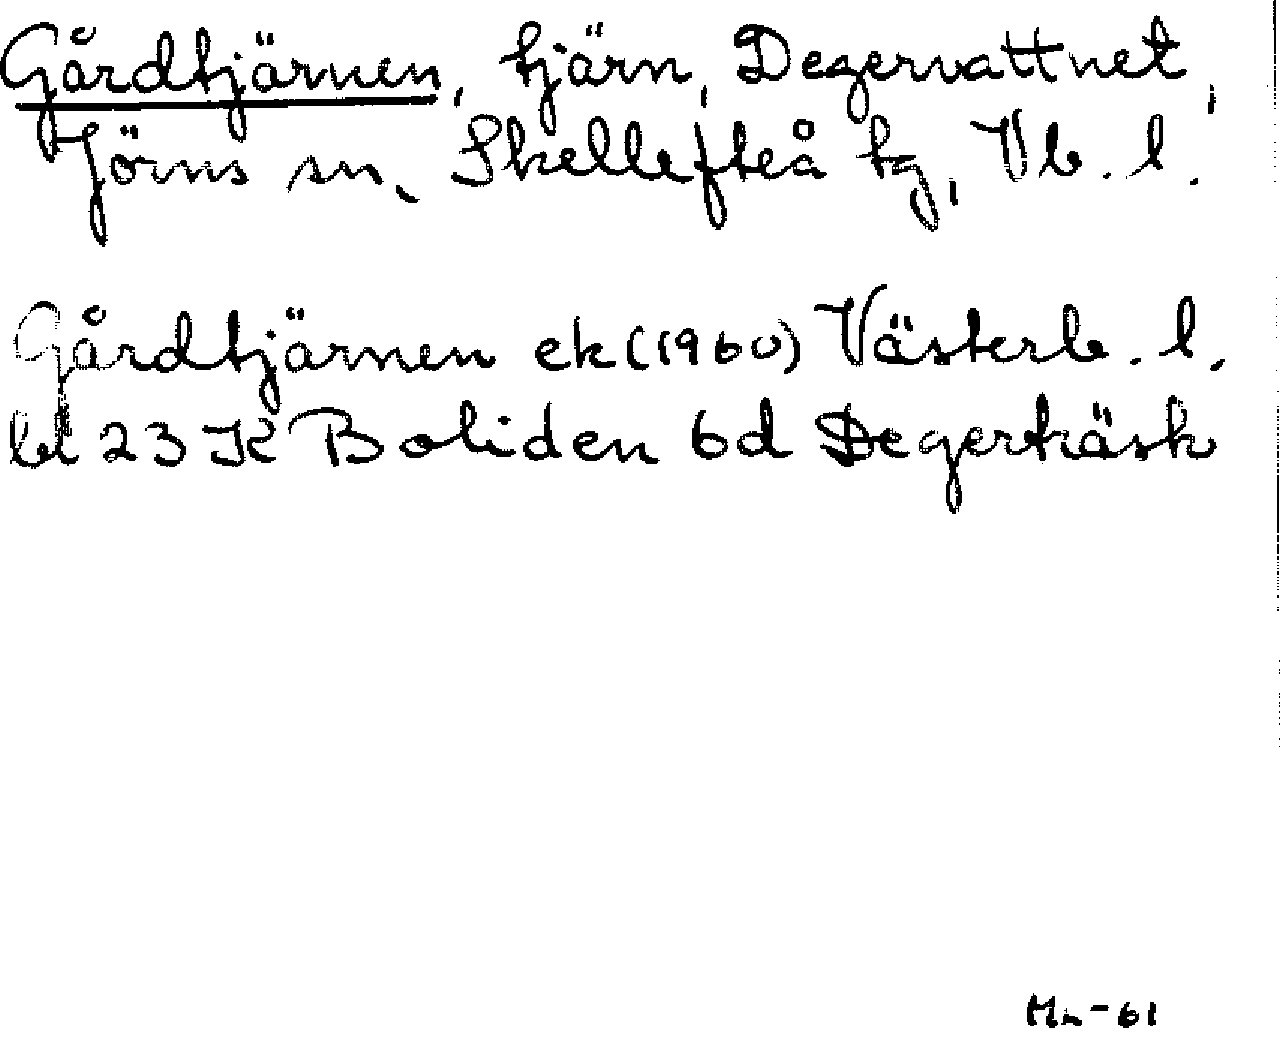 Gårdtjärnen, tjärn, Degervattnet,
Jörns sn, Skellefteå tg, Vb. l.
Gårdtjärnen ek (1960) Västerb. l.
bl 23 K Boliden 6d Degerträsk
Mn-61